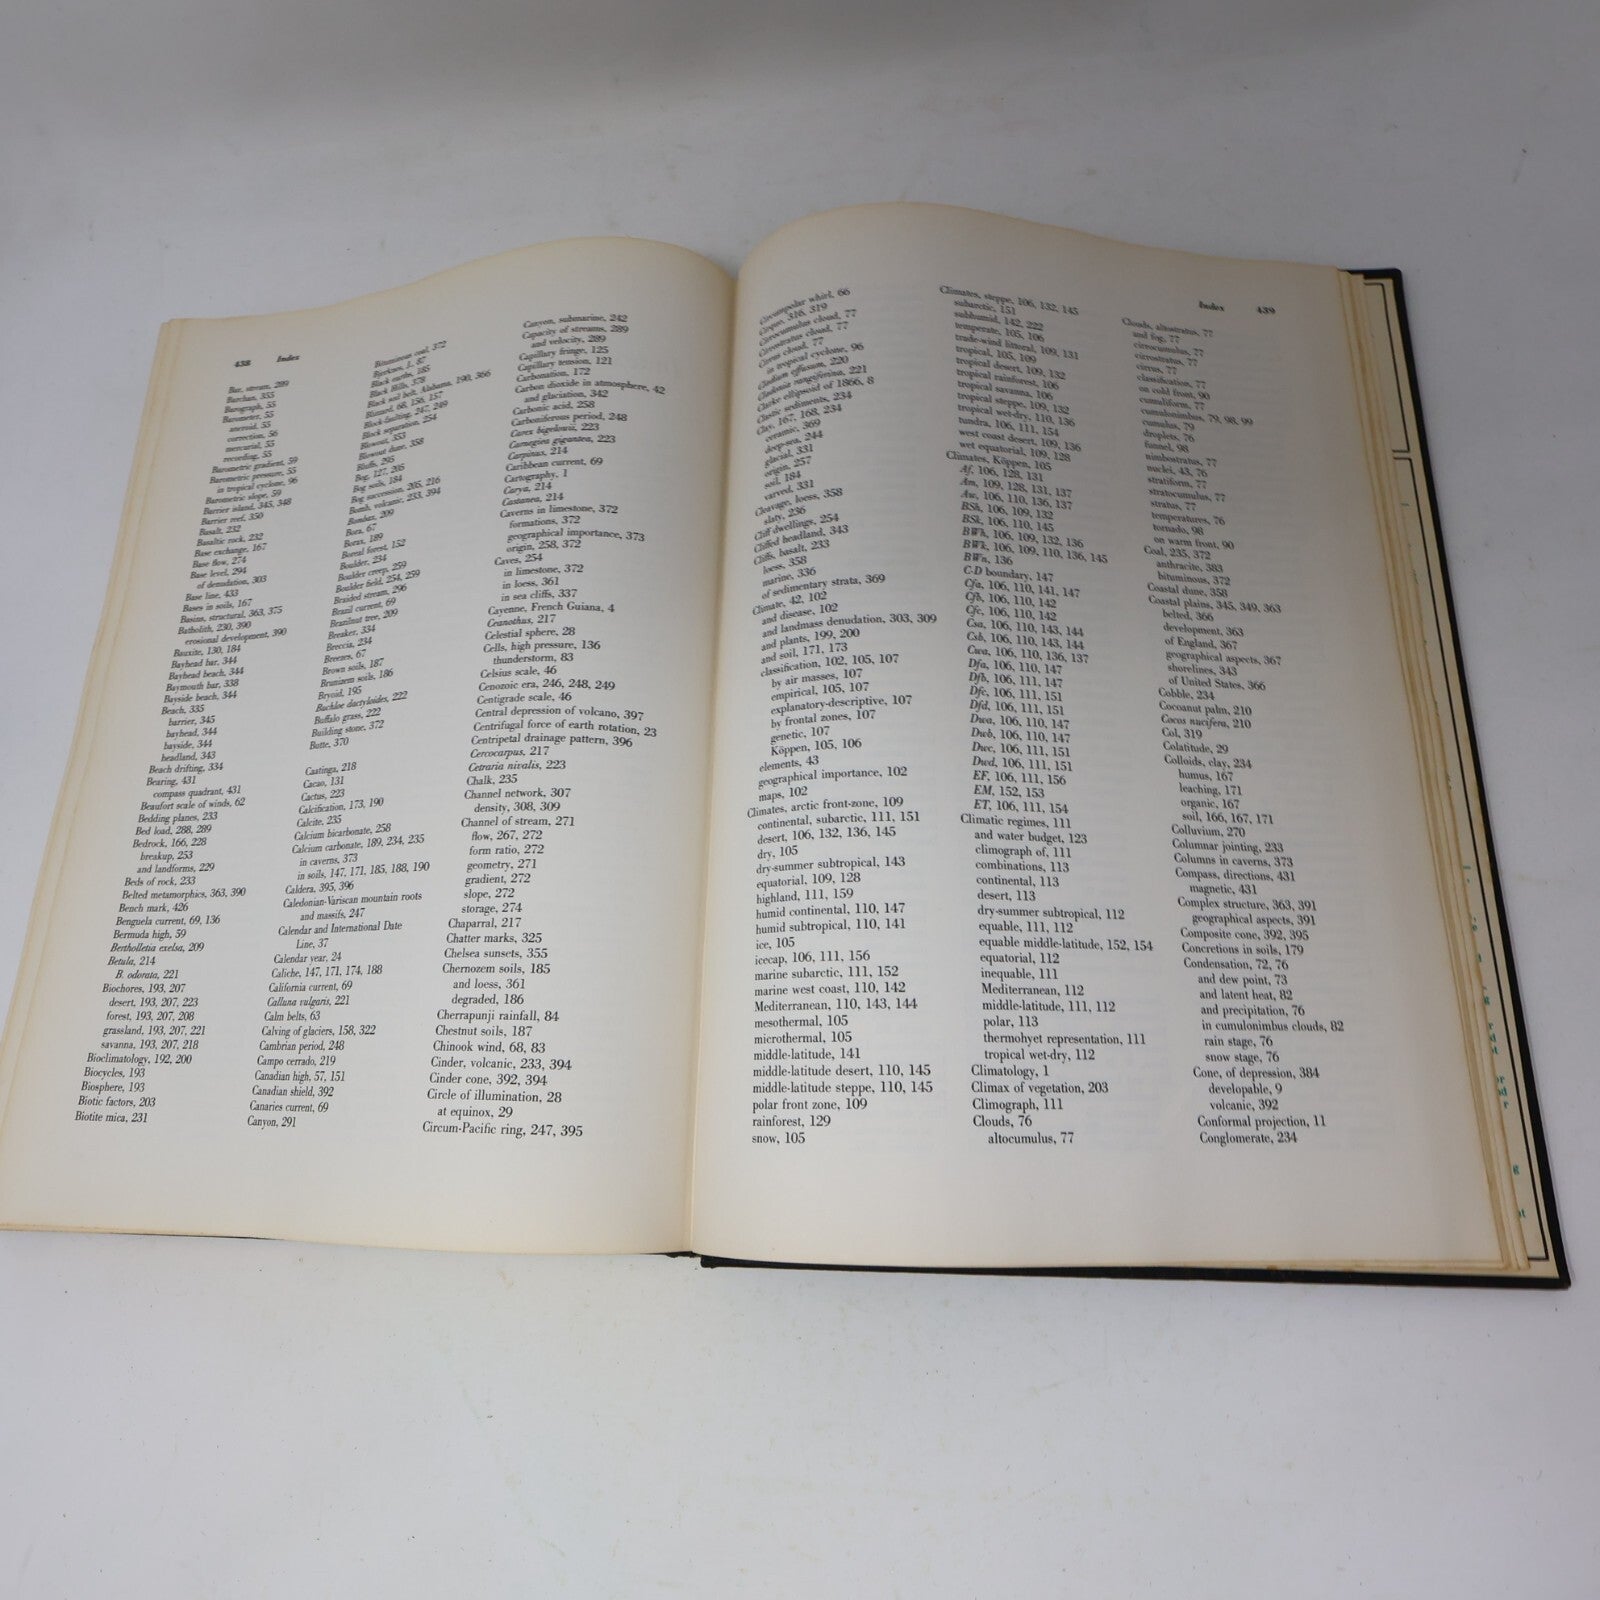 438 Index
Bar, stream, 289
Barchan, 355
Barograph, 55
Barometer, 55
aneroid, 55
correction, 56
mercurial, 55
recording, 55
Barometric gradient, 59
Barometric pressure, 55
in tropical cyclone, 96
Barometric slope, 59
Barrier island, 345, 348
Barrier reef, 350
Basalt, 232
Basaltic rock, 232
Base exchange, 167
Base flow, 274
Base level, 294
of denudation, 303
Base line, 433
Bases in soils, 167
Basins, structural, 363, 375
Batholith, 230, 390
erosional development, 390
Bauxite, 130, 184
Bayhead bar, 344
Bayhead beach, 344
Baymouth bar, 338
Bayside beach, 344
Beach, 335
barrier, 345
bayhead, 344
bayside, 344
headland, 343
Beach drifting, 334
Bearing, 431
compass quadrant, 431
Beaufort scale of winds, 62
Bedding planes, 233
Bed load, 288, 289
Bedrock, 166, 228
breakup, 253
and landforms, 229
Beds of rock, 233
Belted metamorphics, 363, 390
Bench mark, 426
Benguela current, 69, 136
Bermuda high, 59
Bertholletia exelsa, 209
Betula, 214
B. odorata, 221
Biochores, 193, 207
desert, 193, 207, 223
forest, 193, 207, 208
grassland, 193, 207, 221
savanna, 193, 207, 218
Bioclimatology, 192, 200
Biocycles, 193
Biosphere, 193
Biotic factors, 203
Biotite mica, 231
Bituminous coal, 372
Bjerknes, J., 87
Black earths, 185
Black Hills, 378
Black soil belt, Alabama, 190, 366
Blizzard, 68, 156, 157
Block-faulting, 247, 249
Block separation, 254
Blowout, 353
Blowout dune, 358
Bluffs, 295
Bog, 127, 205
Bog soils, 184
Bog succession, 205, 216
Bomb, volcanic, 233, 394
Bombax, 209
Bora, 67
Borax, 189
Boreal forest, 152
Boulder, 234
Boulder creep, 259
Boulder field, 254, 259
Braided stream, 296
Brazil current, 69
Brazilnut tree, 209
Breaker, 334
Breccia, 234
Breezes, 67
Brown soils, 187
Brunizem soils, 186
Bryoid, 195
Buchloe dactyloides, 222
Buffalo grass, 222
Building stone, 372
Butte, 370
Caatinga, 218
Cacao, 131
Cactus, 223
Calcification, 173, 190
Calcite, 235
Calcium bicarbonate, 258
Calcium carbonate, 189, 234, 235
in caverns, 373
in soils, 147, 171, 185, 188, 190
Caldera, 395, 396
Caledonian-Variscan mountain roots
and massifs, 247
Calendar and International Date
Line, 37
Calendar year, 24
Caliche, 147, 171, 174, 188
California current, 69
Calluna vulgaris, 221
Calm belts, 63
Calving of glaciers, 158, 322
Cambrian period, 248
Campo cerrado, 219
Canadian high, 57, 151
Canadian shield, 392
Canaries current, 69
Canyon, 291
Canyon, submarine, 242
Capacity of streams, 289
and velocity, 289
Capillary fringe, 125
Capillary tension, 121
Carbonation, 172
Carbon dioxide in atmosphere, 42
and glaciation, 342
Carbonic acid, 258
Carboniferous period, 248
Carex bigelowii, 223
Carnegiea gigantea, 223
Carpinus, 214
Caribbean current, 69
Cartography, 1
Carya, 214
Castanea, 214
Caverns in limestone, 372
formations, 372
geographical importance, 373
origin, 258, 372
Caves, 254
in limestone, 372
in loess, 361
in sea cliffs, 337
Cayenne, French Guiana, 4
Ceanothus, 217
Celestial sphere, 28
Cells, high pressure, 136
thunderstorm, 83
Celsius scale, 46
Cenozoic era, 246, 248, 249
Centigrade scale, 46
Central depression of volcano, 397
Centrifugal force of earth rotation, 23
Centripetal drainage pattern, 396
Cercocarpus, 217
Cetraria nivalis, 223
Chalk, 235
Channel network, 307
density, 308, 309
Channel of stream, 271
flow, 267, 272
form ratio, 272
geometry, 271
gradient, 272
slope, 272
storage, 274
Chaparral, 217
Chatter marks, 325
Chelsea sunsets, 355
Chernozem soils, 185
and loess, 361
degraded, 186
Cherrapunji rainfall, 84
Chestnut soils, 187
Chinook wind, 68, 83
Cinder, volcanic, 233, 394
Cinder cone, 392, 394
Circle of illumination, 28
at equinox, 29
Circum-Pacific ring, 247, 395
Index 439
Circumpolar whirl, 66
Cirque, 316, 319
Cirrocumulus cloud, 77
Cirrostratus cloud, 77
Cirrus cloud, 77
in tropical cyclone, 96
Cladium effusum, 220
Cladonia rangiferina, 221
Clarke ellipsoid of 1866, 8
Clastic sediments, 234
Clay, 167, 168, 234
ceramic, 369
deep-sea, 244
glacial, 331
origin, 257
soil, 184
varved, 331
Cleavage, loess, 358
slaty, 236
Cliff dwellings, 254
Cliffed headland, 343
Cliffs, basalt, 233
loess, 358
marine, 336
of sedimentary strata, 369
Climate, 42, 102
and disease, 102
and landmass denudation, 303, 309
and plants, 199, 200
and soil, 171, 173
classification, 102, 105, 107
by air masses, 107
empirical, 105, 107
explanatory-descriptive, 107
by frontal zones, 107
genetic, 107
Köppen, 105, 106
elements, 43
geographical importance, 102
maps, 102
Climates, arctic front-zone, 109
continental, subarctic, 111, 151
desert, 106, 132, 136, 145
dry, 105
dry-summer subtropical, 143
equatorial, 109, 128
highland, 111, 159
humid continental, 110, 147
humid subtropical, 110, 141
ice, 105
icecap, 106, 111, 156
marine subarctic, 111, 152
marine west coast, 110, 142
Mediterranean, 110, 143, 144
mesothermal, 105
microthermal, 105
middle-latitude, 141
middle-latitude desert, 110, 145
middle-latitude steppe, 110, 145
polar front zone, 109
rainforest, 129
snow, 105
Climates, steppe, 106, 132, 145
subarctic, 151
subhumid, 142, 222
temperate, 105, 106
trade-wind littoral, 109, 131
tropical, 105, 109
tropical desert, 109, 132
tropical rainforest, 106
tropical savanna, 106
tropical steppe, 109, 132
tropical wet-dry, 110, 136
tundra, 106, 111, 154
west coast desert, 109, 136
wet equatorial, 109, 128
Climates, Köppen, 105
Af, 106, 128, 131
Am, 109, 128, 131, 137
Aw, 106, 110, 136, 137
BSh, 106, 109, 132
BSk, 106, 110, 145
BWh, 106, 109, 132, 136
BWk, 106, 109, 110, 136, 145
BWn, 136
C-D boundary, 147
Cfa, 106, 110, 141, 147
Cfb, 106, 110, 142
Cfc, 106, 110, 142
Csa, 106, 110, 143, 144
Csb, 106, 110, 143, 144
Cwa, 106, 110, 136, 137
Dfa, 106, 110, 147
Dfb, 106, 111, 147
Dfc, 106, 111, 151
Dfd, 106, 111, 151
Dwa, 106, 110, 147
Dwb, 106, 110, 147
Dwc, 106, 111, 151
Dwd, 106, 111, 151
EF, 106, 111, 156
EM, 152, 153
ET, 106, 111, 154
Climatic regimes, 111
and water budget, 123
climograph of, 111
combinations, 113
continental, 113
desert, 113
dry-summer subtropical, 112
equable, 111, 112
equable middle-latitude, 152, 154
equatorial, 112
inequable, 111
Mediterranean, 112
middle-latitude, 111, 112
polar, 113
thermohyet representation, 111
tropical wet-dry, 112
Climatology, 1
Climax of vegetation, 203
Climograph, 111
Clouds, 76
altocumulus, 77
Clouds, altostratus, 77
and fog, 77
cirrocumulus, 77
cirrostratus, 77
cirrus, 77
classification, 77
on cold front, 90
cumuliform, 77
cumulonimbus, 79, 98, 99
cumulus, 79
droplets, 76
funnel, 98
nimbostratus, 77
nuclei, 43, 76
stratiform, 77
stratocumulus, 77
stratus, 77
temperatures, 76
tornado, 98
on warm front, 90
Coal, 235, 372
anthracite, 383
bituminous, 372
Coastal dune, 358
Coastal plains, 345, 349, 363
belted, 366
development, 363
of England, 367
geographical aspects, 367
shorelines, 343
of United States, 366
Cobble, 234
Cocoanut palm, 210
Cocos nucifera, 210
Col, 319
Colatitude, 29
Colloids, clay, 234
humus, 167
leaching, 171
organic, 167
soil, 166, 167, 171
Colluvium, 270
Columnar jointing, 233
Columns in caverns, 373
Compass, directions, 431
magnetic, 431
Complex structure, 363, 391
geographical aspects, 391
Composite cone, 392, 395
Concretions in soils, 179
Condensation, 72, 76
and dew point, 73
and latent heat, 82
and precipitation, 76
in cumulonimbus clouds, 82
rain stage, 76
snow stage, 76
Cone, of depression, 384
developable, 9
volcanic, 392
Conformal projection, 11
Conglomerate, 234